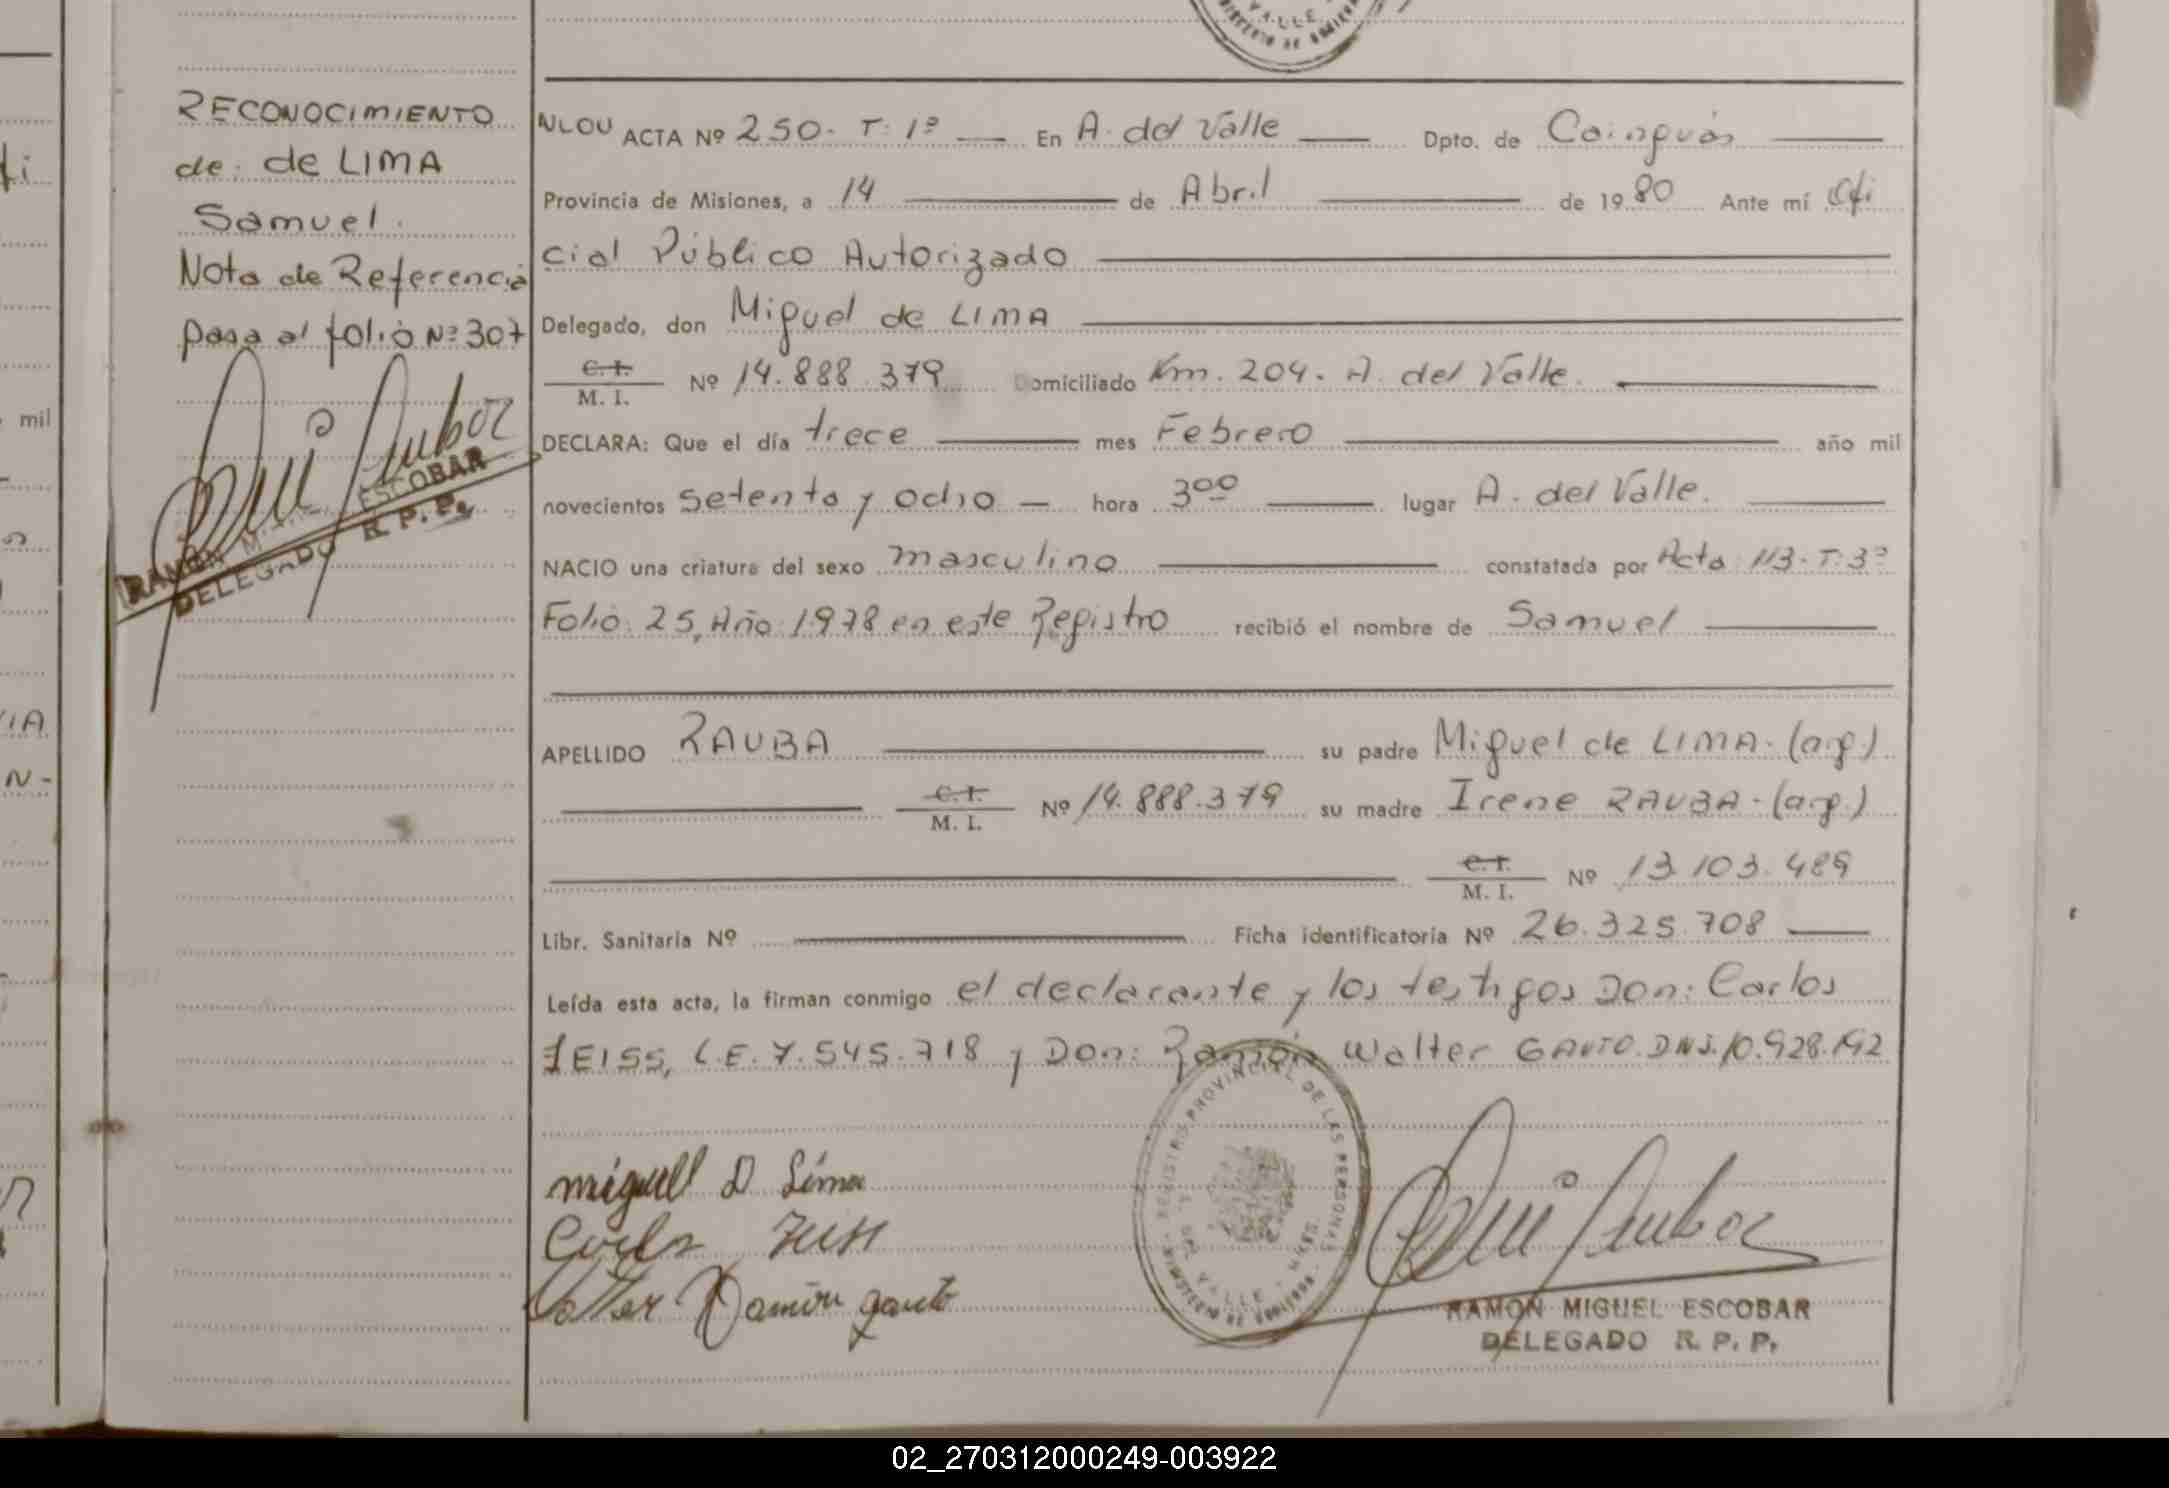 RECONOCIMIENTO
de: de LIMA
Samuel.
Nota de Referencia
pasa al folio Nº 307
ESCOBAR
RAMON M.
DELEGADO R. P. P.
NLOU ACTA Nº 250. T: 1º En A. del Valle Dpto. de Cainguás
Provincia de Misiones, a 14 de Abril de 1980 Ante mí Ofi
cial Público Autorizado
Delegado, don Miguel de LIMA
C. I.
M. I. Nº 14.888.379 Domiciliado Km. 204. A. del Valle.
DECLARA: Que el día trece mes Febrero año mil
novecientos Setenta y ocho hora 3 00 lugar A. del Valle.
NACIO una criatura del sexo masculino constatada por Acta 113. T: 3º
Folio: 25, Año: 1978 en este Registro recibió el nombre de Samuel
APELLIDO RAUBA su padre Miguel de LIMA. (arg.)
C. I.
M. I. Nº 14.888.379 su madre Irene RAUBA. (arg.)
C. I.
M. I. Nº 13.103.489
Libr. Sanitaria Nº Ficha identificatoria Nº 26.325.708
Leída esta acta, la firman conmigo el declarante y los testigos Don: Carlos
ZEISS, L.E. 7.545.718 y Don: Ramón Walter GAUTO. DNI. 10.928.192
REGISTRO PROVINCIAL DE LAS PERSONAS
miguell D Lima
Carlos Zeiss
Walter Ramón gauto
RAMON MIGUEL ESCOBAR
DELEGADO R. P. P.
02_270312000249-003922